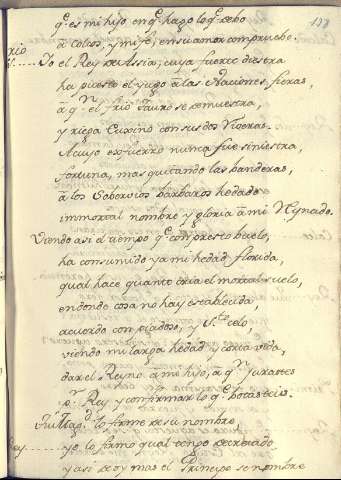 137
q.e es mi hijo en q.e hago lo q.e debo
a todos, y mi fe, en su amor compruebe.
Yo el Rey de Assia, cuya fuerte diestra
ha puesto el yugo a las Naciones fieras,
a q.n el frio Tauro se demuestra,
y riega con sus dos Riveras.
A cuyo esfuerzo nunca fue siniestra,
fortuna, mas quitando las banderas,
a los Sobervios barbaros he dado
immortal nombre y gloria a mi Reynado.
Viendo asi el tiempo q.e con presto buelo,
ha consumido ya mi hedad florida,
qual hace quanto cria el mortal suelo,
en donde cosa no hay establecida,
acuerdo con piadoso, y S.to celo,
viendo mi larga hedad y corta vida,
dar el Reyno a mi hijo, a q.n jurasteis
p.r Rey y confirmar lo q.e botasteis.
lo firme de su nombre,
Rey
yo lo firmo qual tengo decretado
y asi de oy mas el Principe se nombre